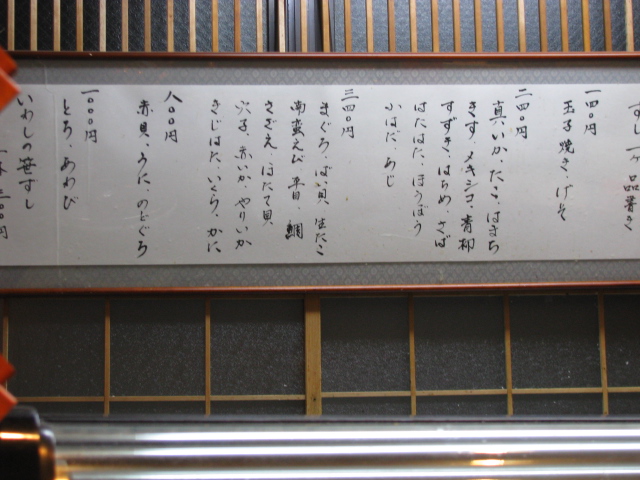 すし 一ヶの品書き
一四〇円
玉子焼き、げそ
二四〇円
真いか、たこ、はまち
きす、メキシコ、青柳
すずき、はちめ、さば
はたはた、ほうぼう
こはだ、あじ
三四〇円
まぐろ、ばい貝、生だこ
南蛮えび、平目、鯛
さざえ、ほたて貝
穴子、赤いか、やりいか
きじはた、いくら、かに
八〇〇円
赤貝、うに、のどぐろ
一〇〇〇円
とろ、あわび
いわしの笹すし